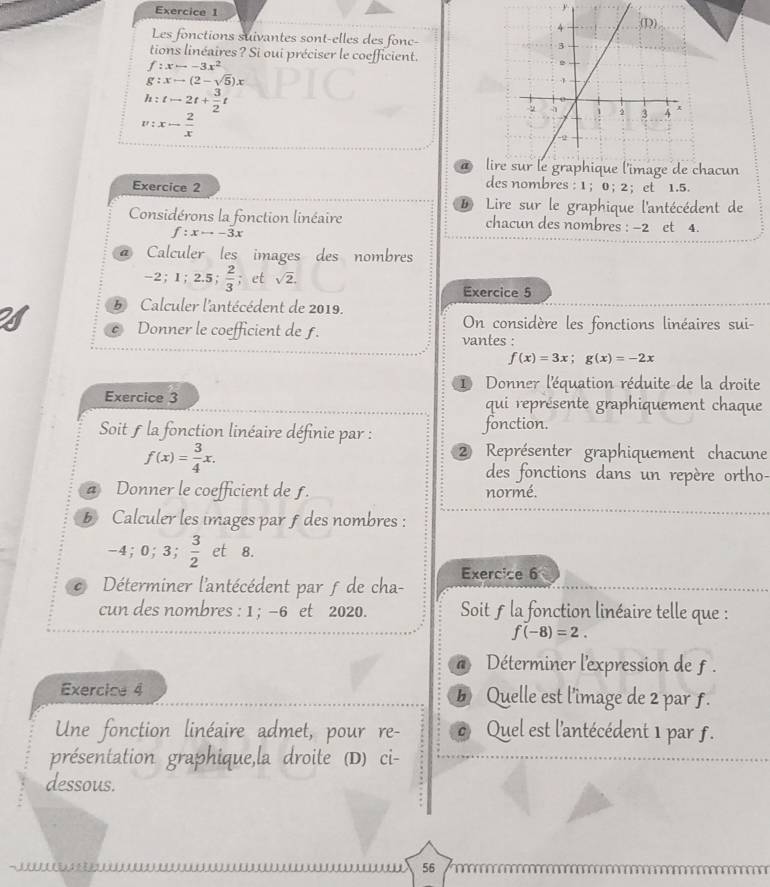 Exercice 1
Les fonctions suivantes sont-elles des fonc-
tions linéaires ? Si oui préciser le coefficient.
f : x → -3x²
g : x → (2 - √5)x
h : t → 2t + 3/2 t
v : x → 2/x
Exercice 2
Considérons la fonction linéaire
f : x → -3x
a Calculer les images des nombres
-2 ; 1 ; 2.5 ; 2/3 ; et √2.
b Calculer l'antécédent de 2019.
c Donner le coefficient de f.
Exercice 3
Soit f la fonction linéaire définie par :
f(x) = 3/4 x.
a Donner le coefficient de f.
b Calculer les images par f des nombres :
-4 ; 0 ; 3 ; 3/2 et 8.
c Déterminer l'antécédent par f de cha-
cun des nombres : 1 ; -6 et 2020.
Exercice 4
Une fonction linéaire admet, pour re-
présentation graphique,la droite (D) ci-
dessous.
y
4 (D)
3
-2 -1 1 2 3 4 x
-2
a lire sur le graphique l'image de chacun
des nombres : 1 ; 0 ; 2 ; et 1.5.
b Lire sur le graphique l'antécédent de
chacun des nombres : -2 et 4.
Exercice 5
On considère les fonctions linéaires sui-
vantes :
f(x) = 3x ; g(x) = -2x
1 Donner l'équation réduite de la droite
qui représente graphiquement chaque
fonction.
2 Représenter graphiquement chacune
des fonctions dans un repère ortho-
normé.
Exercice 6
Soit f la fonction linéaire telle que :
f(-8) = 2 .
a Déterminer l'expression de f .
b Quelle est l'image de 2 par f.
c Quel est l'antécédent 1 par f.
56